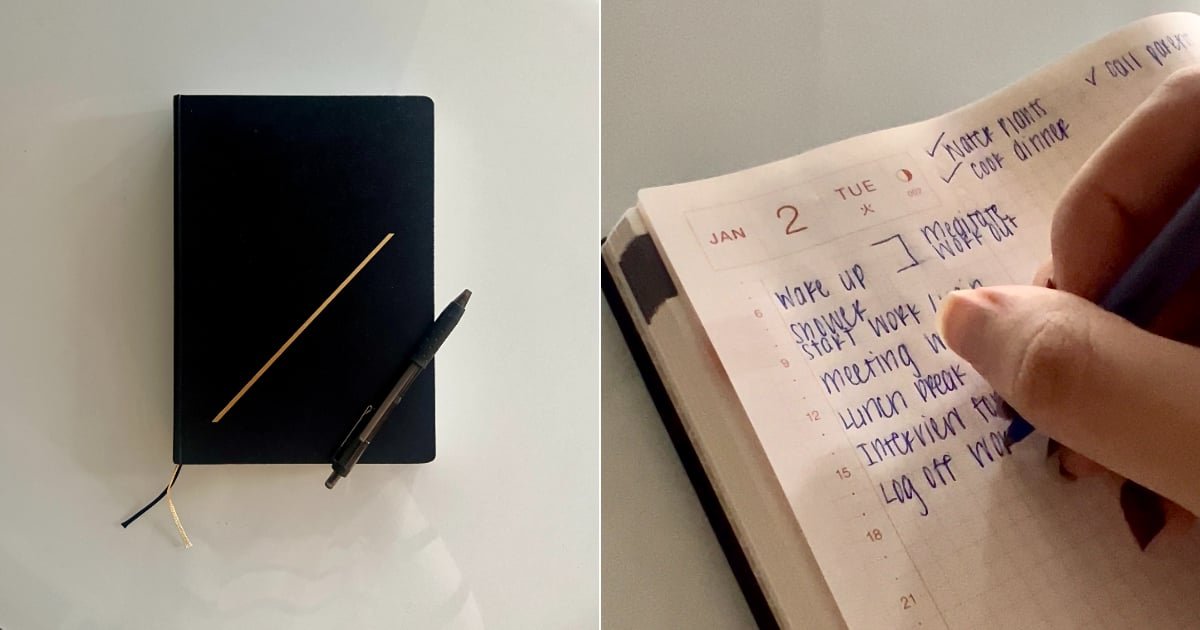 ✓ call
✓ Water Plants
✓ cook dinner
JAN 2 TUE
火
002
Meditate
Work out
wake up
6
shower
start work
9
meeting
Lunch break
12
Interview
Log off
15
18
21